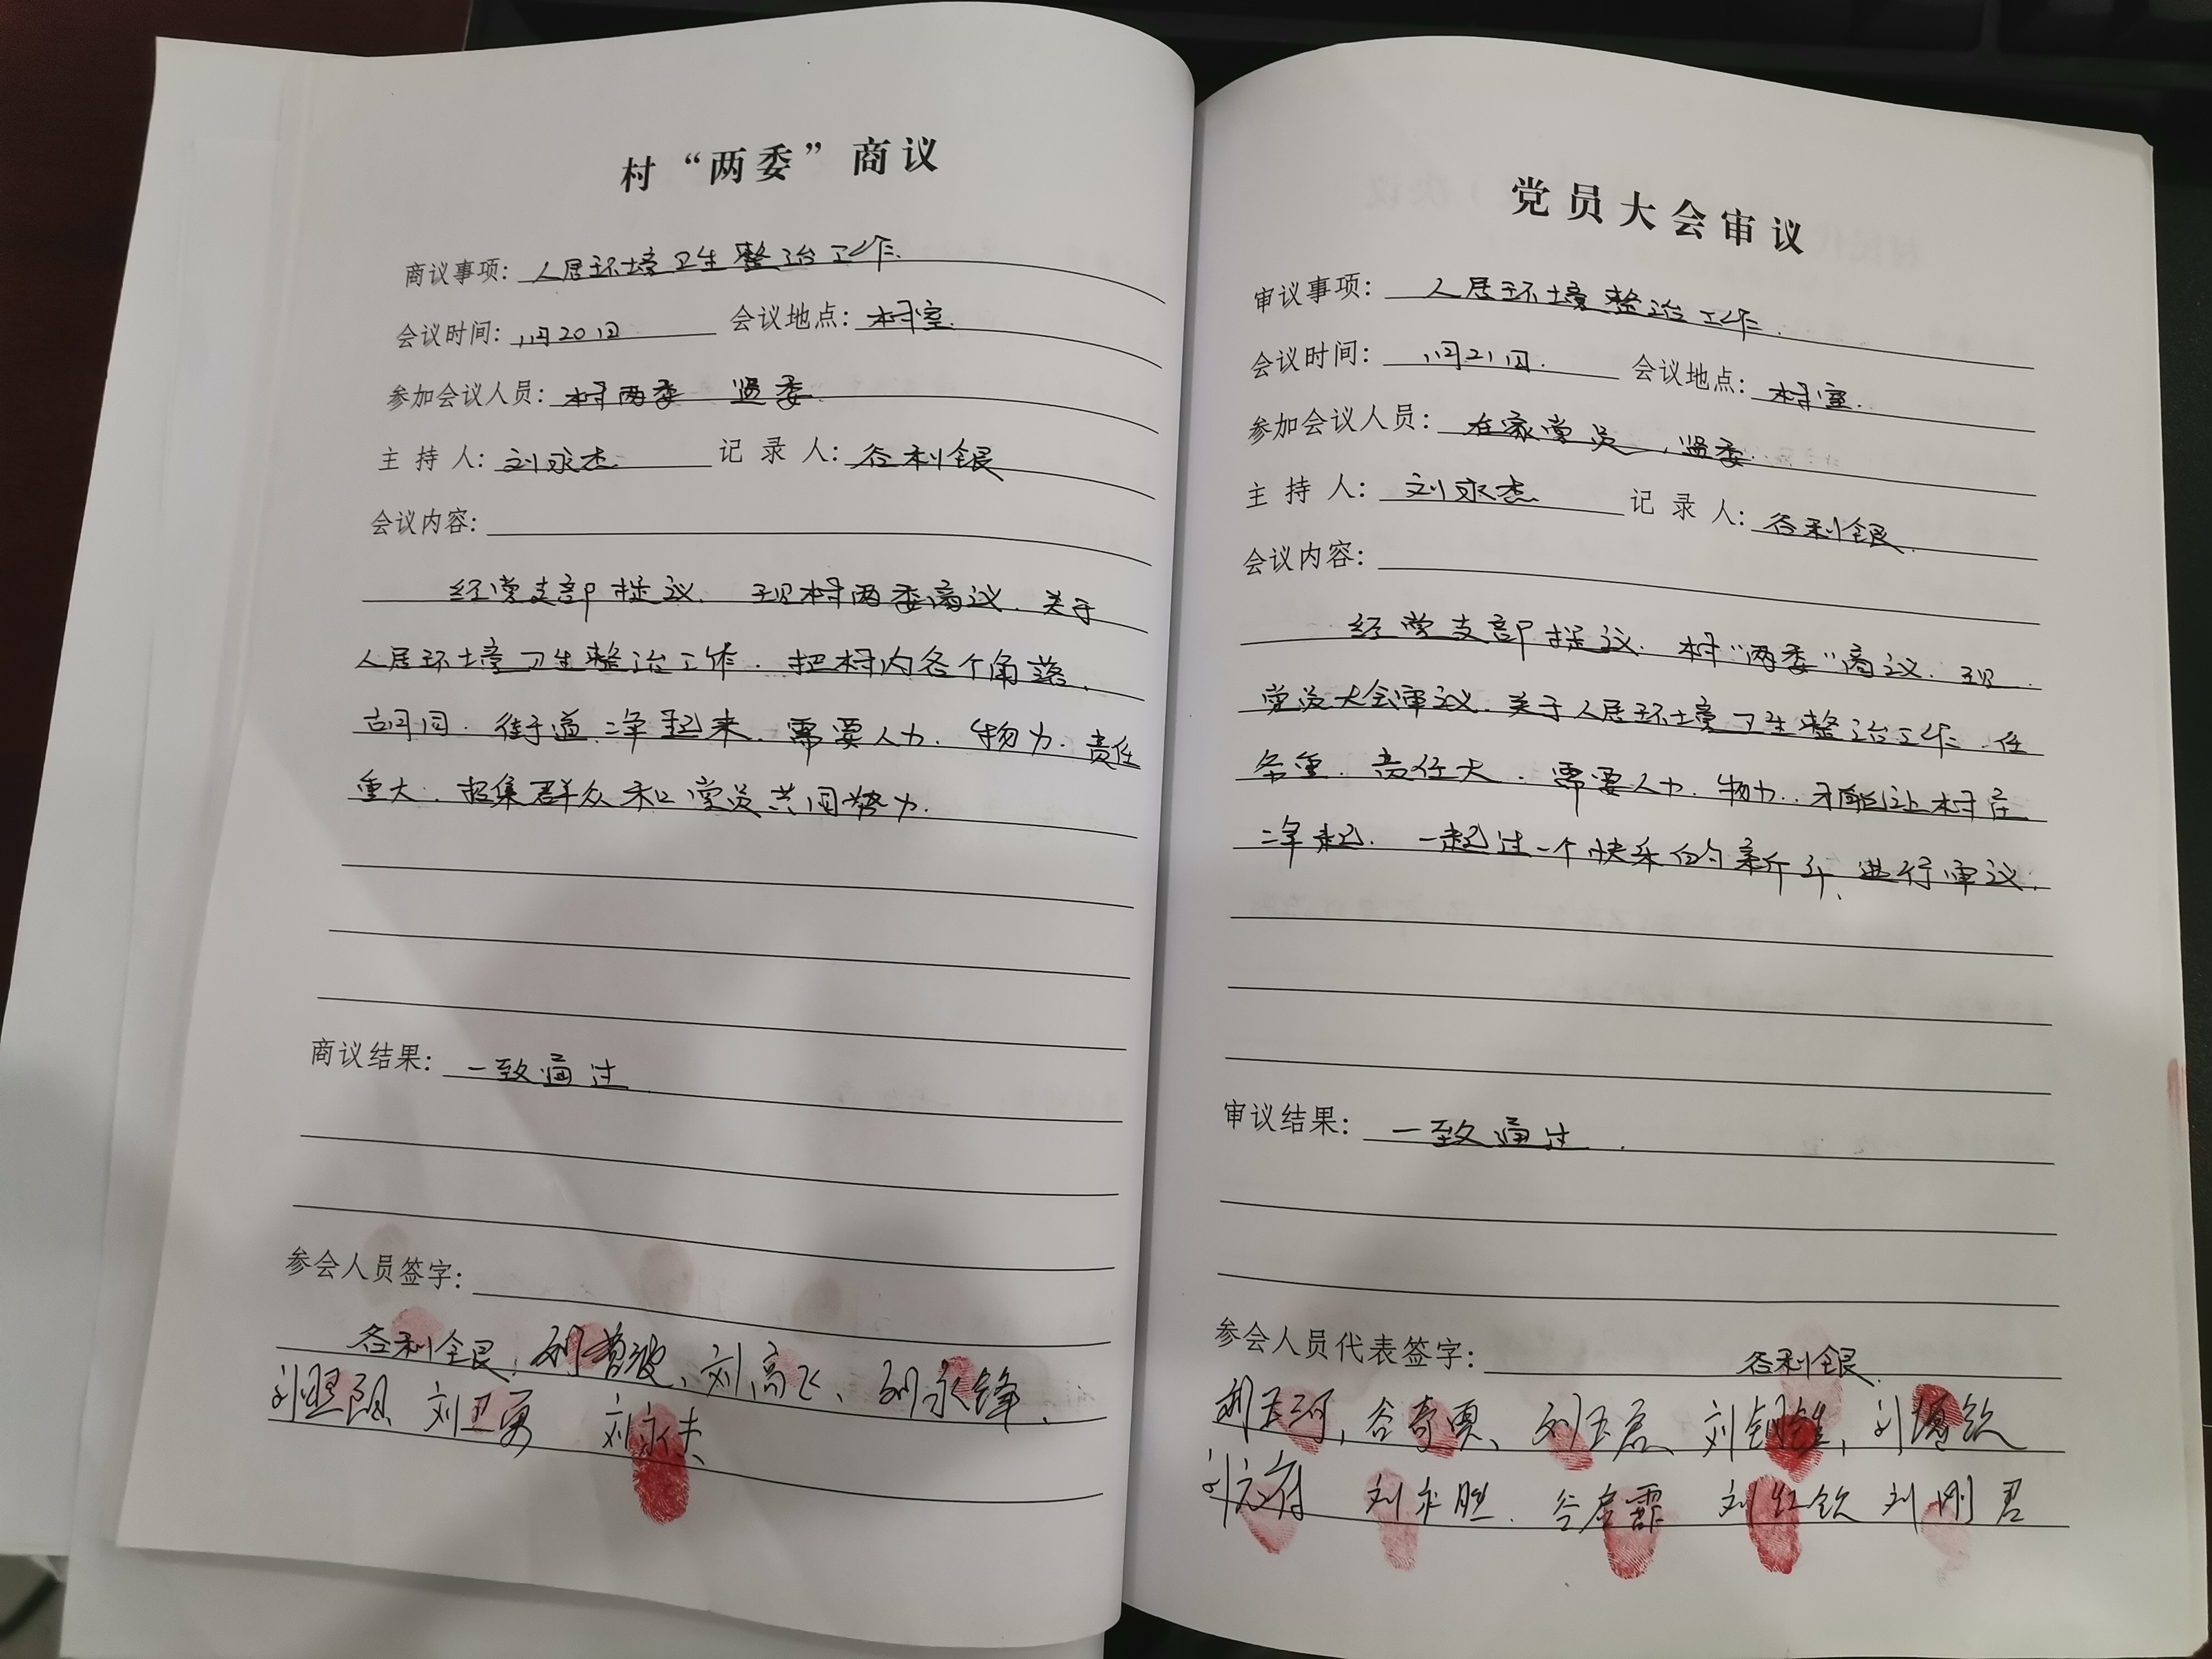 村“两委”商议
商议事项：人居环境卫生整治工作.
会议时间：11月20日 会议地点：村室.
参加会议人员：村两委 监委.
主持人：刘永杰 记录人：谷利银
会议内容：
经党支部提议. 现村两委商议. 关于
人居环境卫生整治工作. 把村内各个角落.
胡同. 街道净起来. 需要人力. 物力. 责任
重大. 招集群众和党员共同努力.
商议结果：一致通过
参会人员签字：
谷利银. 刘曾波、刘高飞、刘永锋.
刘卫勇
党员大会审议
审议事项：人居环境整治工作.
会议时间：11月21日. 会议地点：村室.
参加会议人员：在家党员，监委.
主持人：刘永杰 记录人：谷利银.
会议内容：
经党支部提议. 村“两委”商议. 现.
党员大会审议. 关于人居环境卫生整治工作. 任
务重. 责任大. 需要人力. 物力.. 才能让村庄
净起. 一起过一个快乐的新年. 进行审议.
审议结果：一致通过.
参会人员代表签字：谷利银.
刘玉河，谷奇、刘玉君、刘钢
刘永胜. 谷启霏 刘红钦 刘刚君